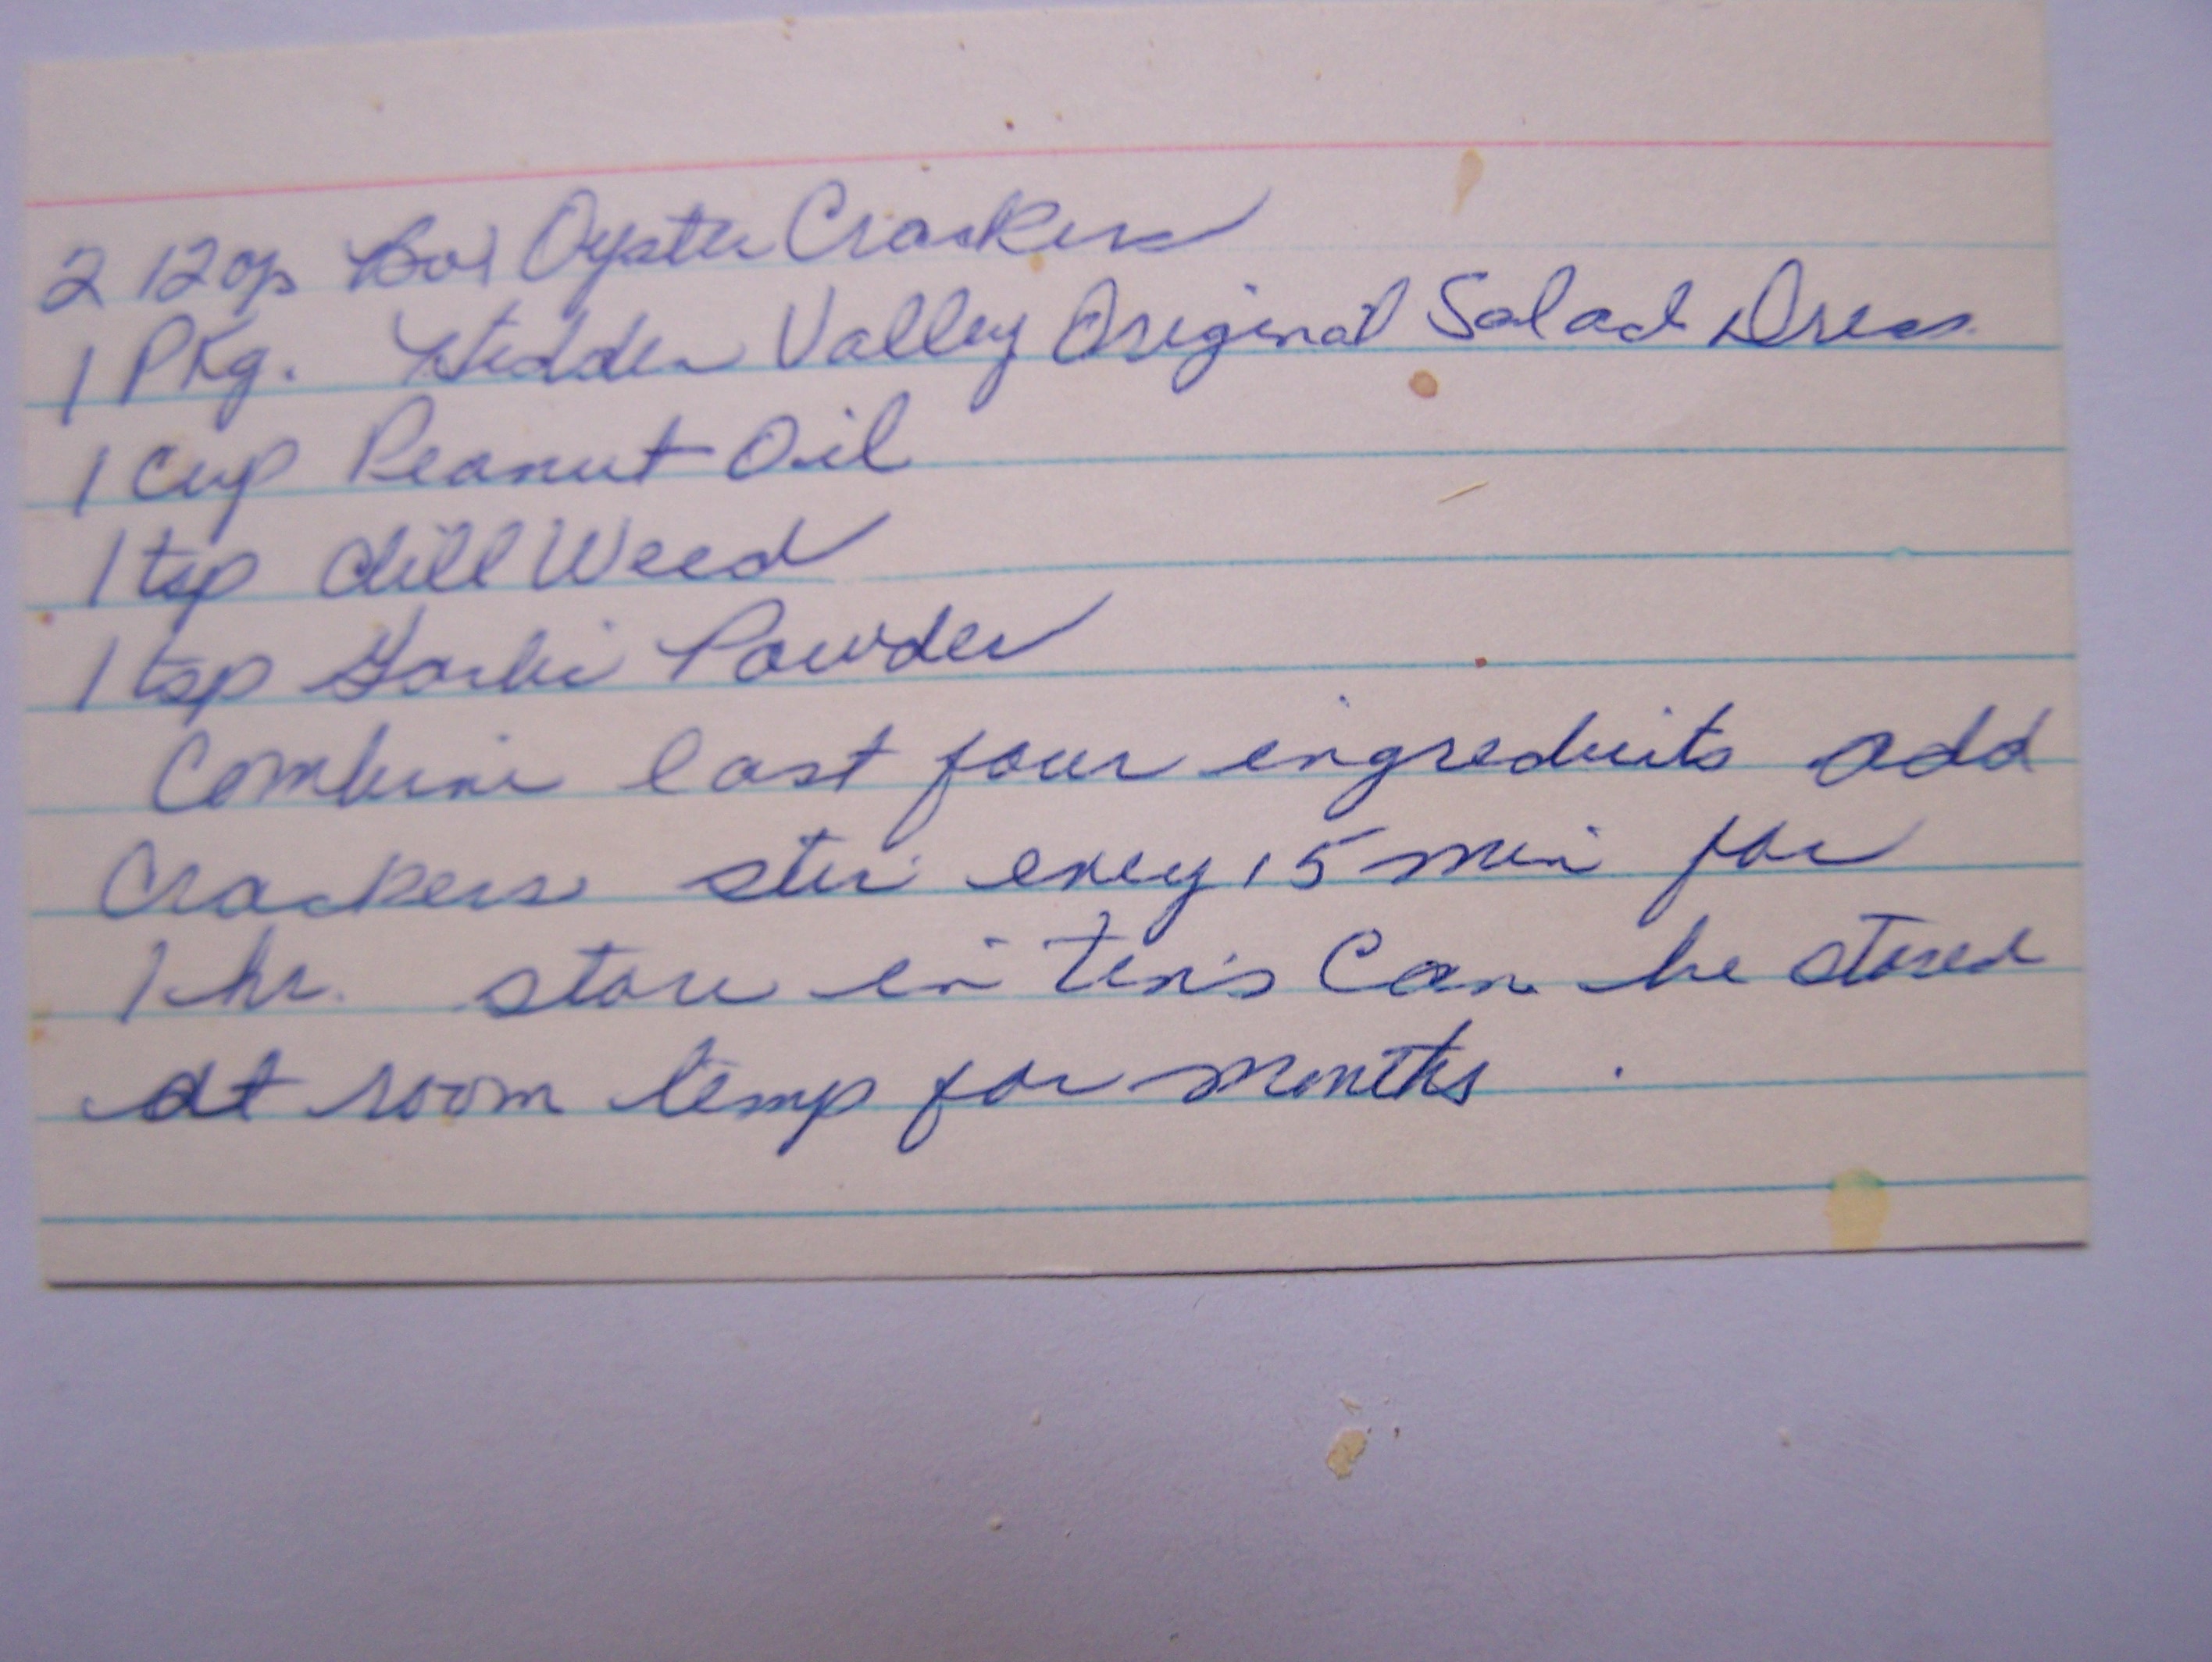 2 12oz Box Oyster Crackers
1 Pkg. Hidden Valley Original Salad Dress.
1 cup Peanut Oil
1 tsp dill Weed
1 tsp Garlic Powder
Combine last four ingredients add
Crackers stir every 15 min for
1 hr. store in Tins Can be stored
at room temp for months .